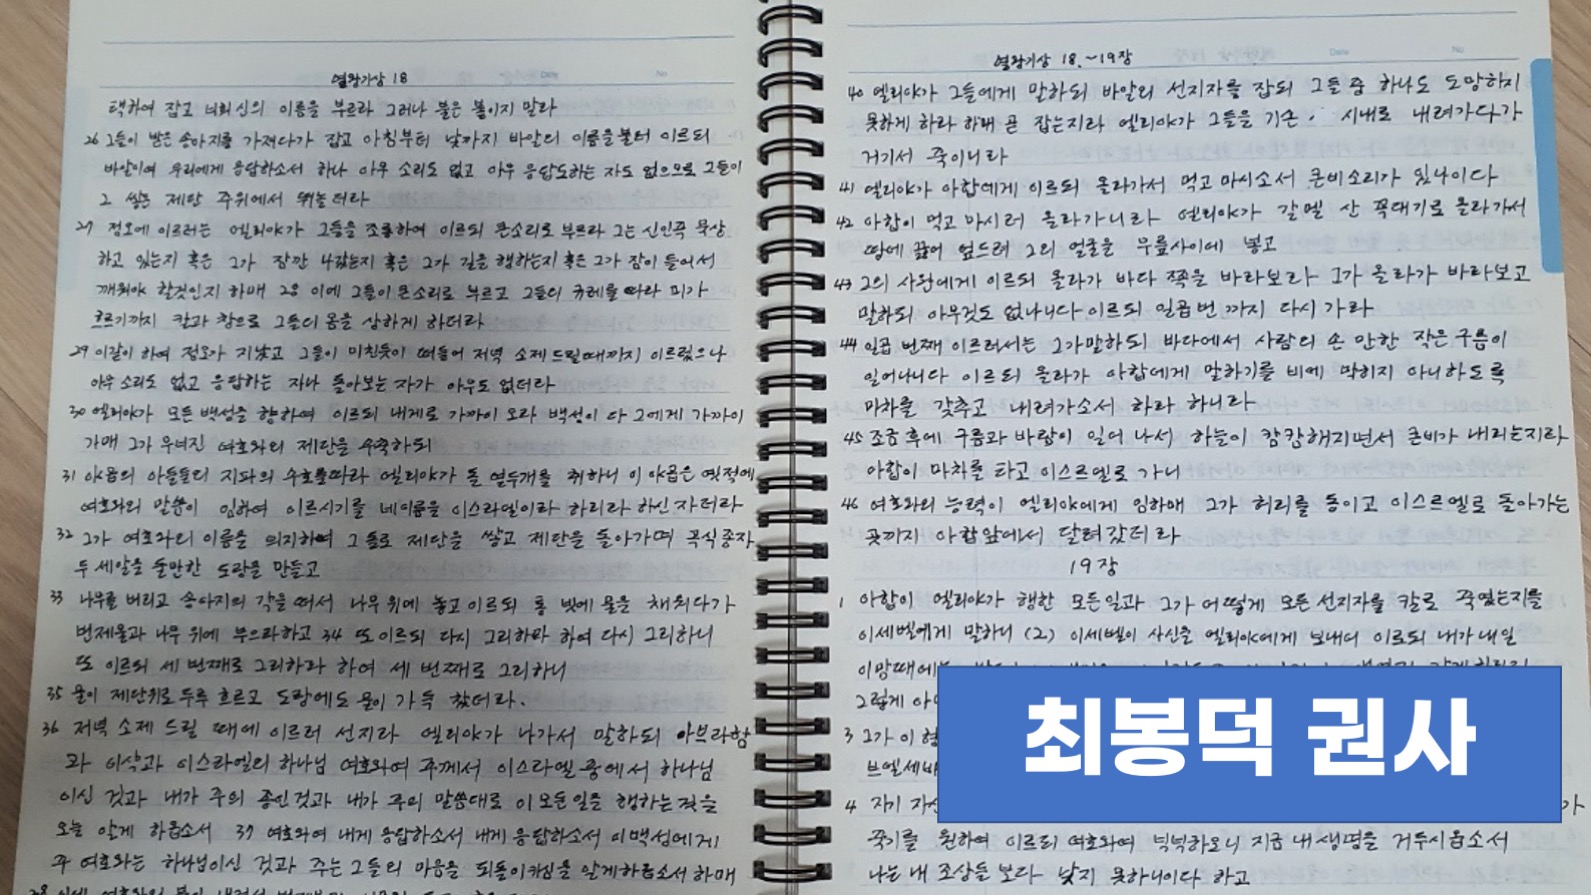 열왕기상 18
택하여 잡고 너희 신의 이름을 부르라 그러나 불은 붙이지 말라
26 그들이 받은 송아지를 가져다가 잡고 아침부터 낮까지 바알의 이름을 불러 이르되
바알이여 우리에게 응답하소서 하나 아무 소리도 없고 아무 응답도하는 자도 없으므로 그들이
그 쌓은 제단 주위에서 뛰놀더라
27 정오에 이르러는 엘리야가 그들을 조롱하여 이르되 큰소리로 부르라 그는 신인즉 묵상
하고 있는지 혹은 그가 잠깐 나갔는지 혹은 그가 길을 행하는지 혹은 그가 잠이 들어서
깨워야 할것인지 하매 28 이에 그들이 큰소리로 부르고 그들의 규례를 따라 피가
흐르기까지 칼과 창으로 그들의 몸을 상하게 하더라
29 이같이 하여 정오가 지났고 그들이 미친듯이 떠들어 저녁 소제 드릴때까지 이르렀으나
아무 소리도 없고 응답하는 자나 돌아보는 자가 아무도 없더라
30 엘리야가 모든 백성을 향하여 이르되 내게로 가까이 오라 백성이 다 그에게 가까이
가매 그가 무너진 여호와의 제단을 수축하되
31 야곱의 아들들의 지파의 수효를따라 엘리야가 돌 열두개를 취하니 이 야곱은 옛적에
여호와의 말씀이 임하여 이르시기를 네이름을 이스라엘이라 하리라 하신 자더라
32 그가 여호와의 이름을 의지하여 그 돌로 제단을 쌓고 제단을 돌아가며 곡식종자
두 세아을 둘만한 도랑을 만들고
33 나무를 버리고 송아지의 각을 떠서 나무 위에 놓고 이르되 통 넷에 물을 채워다가
번제물과 나무 위에 부으라하고 34 또 이르되 다시 그리하라 하여 다시 그리하니
또 이르되 세 번째로 그리하라 하여 세 번째로 그리하니
35 물이 제단위로 두루 흐르고 도랑에도 물이 가득 찼더라.
36 저녁 소제 드릴 때에 이르러 선지라 엘리야가 나가서 말하되 아브라함
과 이삭과 이스라엘의 하나님 여호와여 주께서 이스라엘 중에서 하나님
이신 것과 내가 주의 종인것과 내가 주의 말씀대로 이 모든일을 행하는 것을
오늘 알게 하옵소서 37 여호와여 내게 응답하소서 내게 응답하소서 이 백성에게
주 여호와는 하나님이신 것과 주는 그들의 마음을 되돌이키심을 알게하옵소서 하매
열왕기상 18.~19장
40 엘리야가 그들에게 말하되 바알의 선지자를 잡되 그들 중 하나도 도망하지
못하게 하라 하매 곧 잡는지라 엘리야가 그들을 기손 시내로 내려가다가
거기서 죽이니라
41 엘리야가 아합에게 이르되 올라가서 먹고 마시소서 큰비소리가 있나이다
42 아합이 먹고 마시러 올라가니라 엘리야가 갈멜 산 꼭대기로 올라가서
땅에 꿇어 엎드려 그의 얼굴을 무릎사이에 넣고
43 그의 사환에게 이르되 올라가 바다 쪽을 바라보라 그가 올라가 바라보고
말하되 아무것도 없나이다 이르되 일곱번 까지 다시 가라
44 일곱 번째 이르러서는 그가말하되 바다에서 사람의 손 만한 작은 구름이
일어나니다 이르되 올라가 아합에게 말하기를 비에 막히지 아니하도록
마차를 갖추고 내려가소서 하라 하니라
45 조금 후에 구름과 바람이 일어 나서 하늘이 캄캄해지면서 큰비가 내리는지라
아합이 마차를 타고 이스르엘로 가니
46 여호와의 능력이 엘리야에게 임하매 그가 허리를 동이고 이스르엘로 돌아가는
곳까지 아합앞에서 달려갔더라
19장
1 아합이 엘리야가 행한 모든일과 그가 어떻게 모든 선지자를 칼로 죽였는지를
이세벨에게 말하니 (2) 이세벨이 사신을 엘리야에게 보내어 이르되 내가 내일
이맘때에는
그렇게 아
3 그가 이
브엘세바
4 자기 자신
최봉덕 권사
죽기를 원하여 이르되 여호와여 넉넉하오니 지금 내 생명을 거두시옵소서
나는 내 조상들 보다 낫지 못하니이다 하고